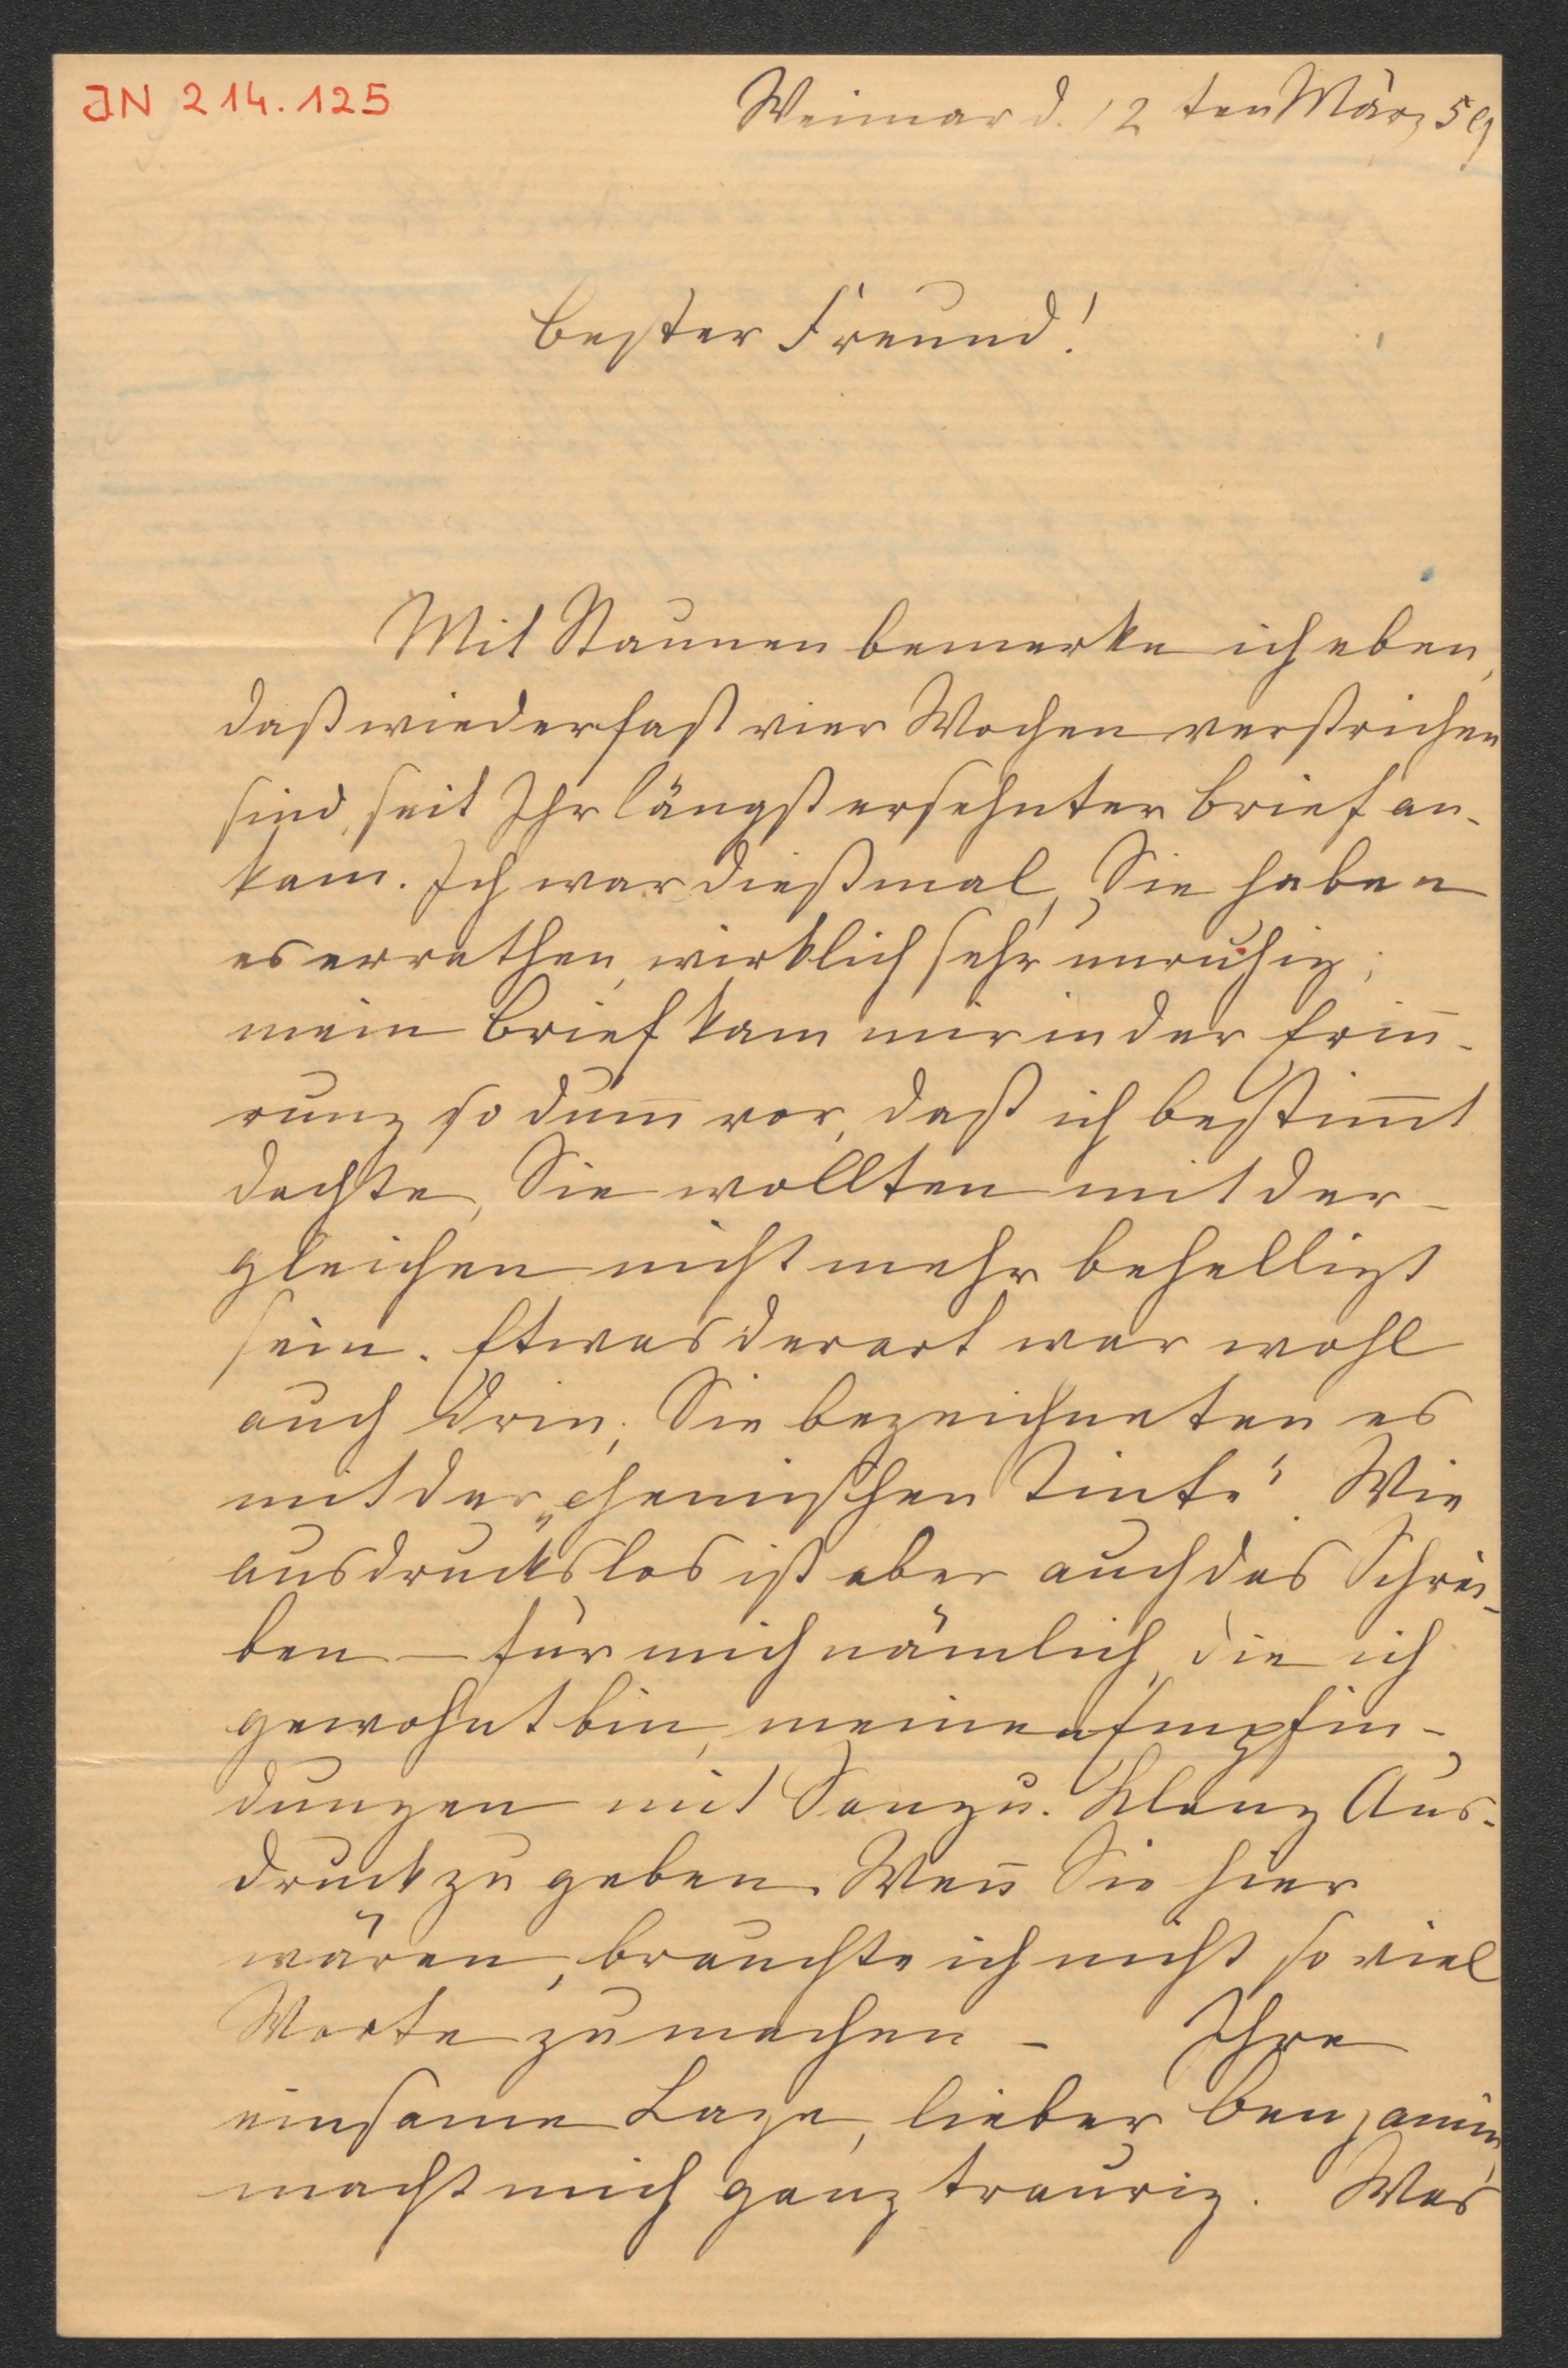 JN 214.125
Weimar d. 12 ten März 59
Bester Freund!
Mit Staunen bemerke ich eben,
daß wieder fast vier Wochen verstrichen
sind, seit Ihr längst ersehnter Brief an-
kam. Ich war dießmal, Sie haben
es errathen, wirklich sehr unruhig;
mein Brief kam mir in der Erin̄-
rung so dum̄ vor, daß ich bestim̄t
dachte, Sie wollten mit der-
gleichen nicht mehr behelligt
sein. Etwas derart war wohl
auch drin; Sie bezeichneten es
mit der „chemischen Tinte“. Wie
ausdruckslos ist aber auch das Schrei-
ben – für mich nämlich, die ich
gewohnt bin, meinen Empfin-
dungen mit Sang u. Klang Aus-
druck zu geben. Wen̄ Sie hier
wären, brauchte ich nicht so viel
Worte zu machen – Ihre
einsame Lage, lieber Benjamin,
macht mich ganz traurig. Was